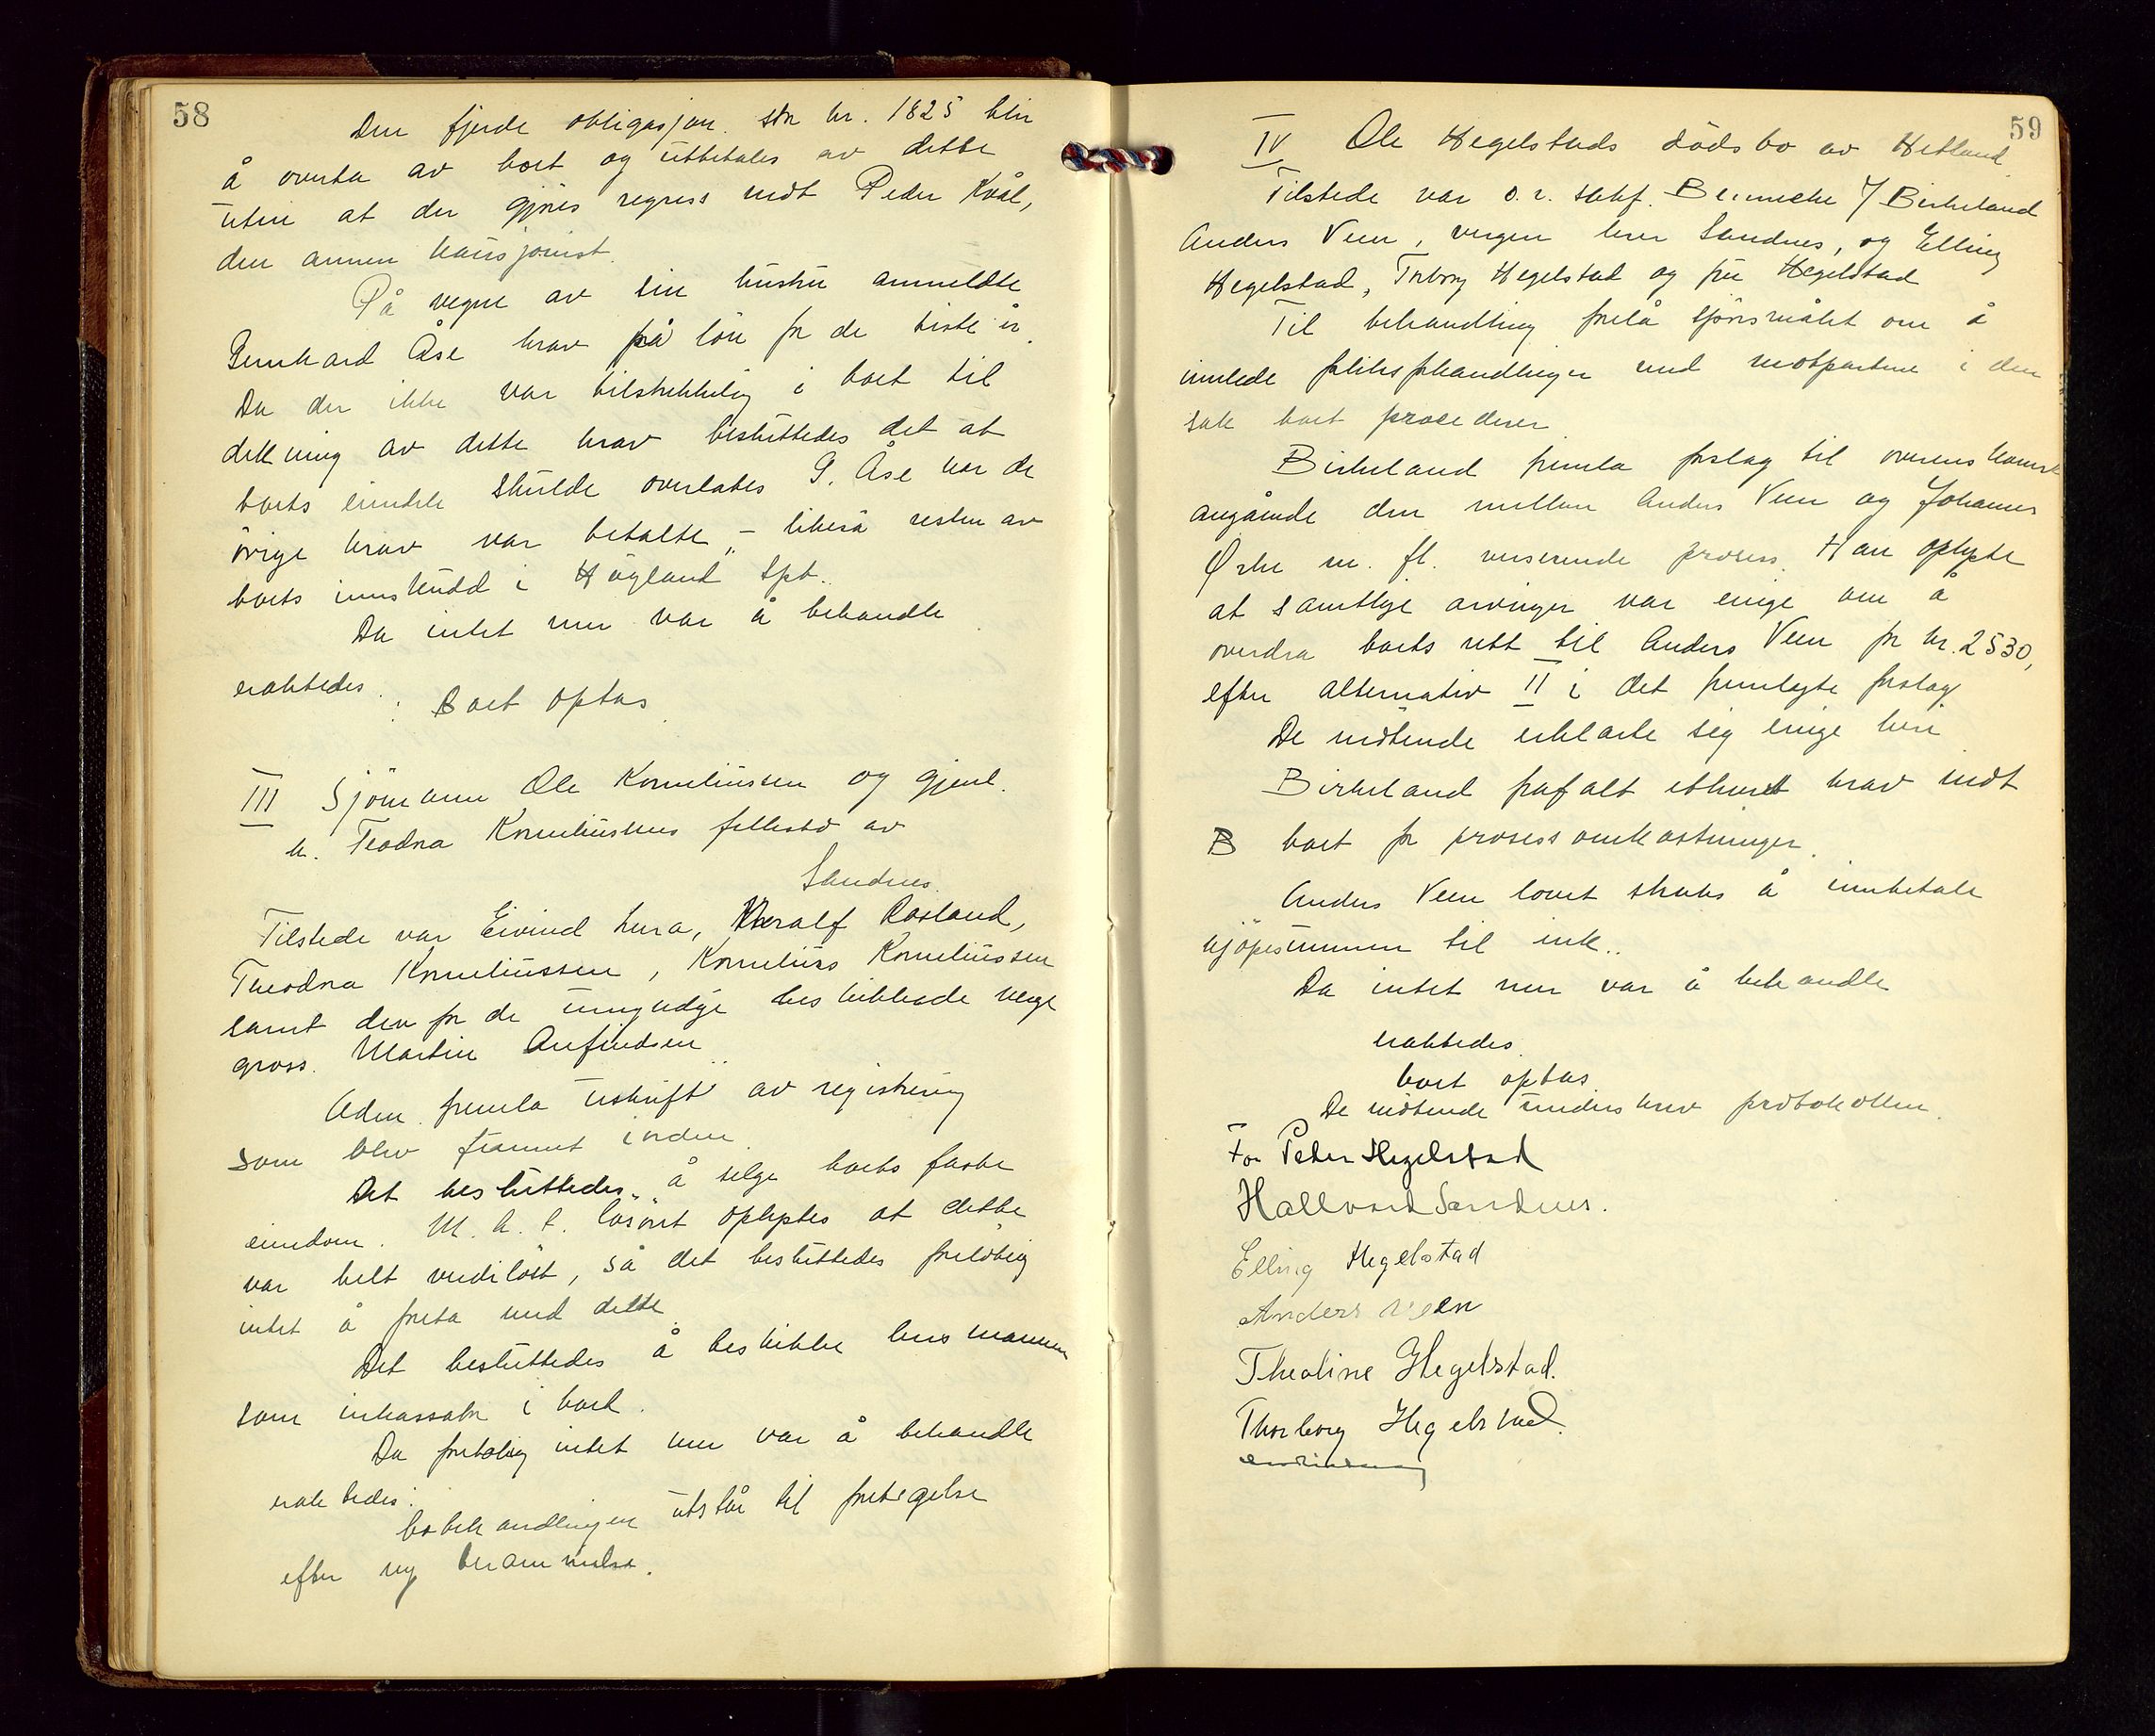 58
Den fjerde obligasjon stor kr. 1825 blir
å overta av boet og utbetales av dette
uten at der gjøres regress mot Peder Kvål,
den annen kausjonist.
På vegne av sin hustru anmeldte
Bernhard Åse krav på lön for de siste år.
Da der ikke var tilstrekkelig i boet til
dekning av dette krav besluttedes det at
boets eiendele skulde overlates G. Åse når de
övrige krav var betalte, – likeså resten av
boets innskudd i Høgland Spb.
Da intet mer var å behandle
eraktedes:
Boet optas
III Sjömann Ole Korneliussen og gjenl.
k. Teodora Korneliussens fellesbo av
Sandnes.
Tilstede var Eivind Lura, Haralf Rosland,
Theodora Korneliussen, Kornelius Korneliussen
samt den for de umyndige beskikkede verge
gross. Martin Anfindsen
Adm. fremla utskrift av registrering
som blev funnet i orden.
Det besluttedes å selge boets faste
eiendom. M. h. t. lösöret oplystes at dette
var helt verdilöst, så det besluttedes forelöbig
intet å foreta med dette.
Det besluttedes å beskikke lensmannen
som inkassator i boet.
Da forelöbig intet mer var å behandle
eraktedes:
bobehandlingen utstår til foretagelse
efter ny berammelse.
59
IV Ole Hegelstads dödsbo av Hetland
Tilstede var o.r. sakf. Bennecke / Birkeland
Anders Veen, vergen herr Sandnes, og Elling
Hegelstad, Torborg Hegelstad og fru Hegelstad
Til behandling forelå spörsmålet om å
innlede forliksforhandlinger med motpartene i den
sak boet procederer
Birkeland fremla forslag til overenskomst
angående den mellem Anders Veen og Johannes
Ørke m. fl. verserende prosess. Han oplyste
at samtlige arvinger var enige om å
overdra boets rett til Anders Veen for kr. 2530,
efter alternativ II i det fremlagte forslag
De mötende erklærte sig enige heri
Birkeland frafalt ethvert krav mot
B boet for prosessomkostninger.
Anders Veen lovet straks å innbetale
kjöpesummen til ink..
Da intet mer var å behandle
eraktedes
boet optas
De mötende underskrev protokollen.
For Peder Hegelstad
Hallvard Sandnes.
Elling Hegelstad
Anders Veen
Theoline Hegelstad.
Thorborg Hegelstad.